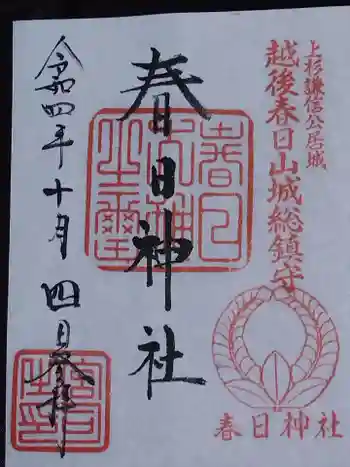 上杉謙信公居城
越後春日山城総鎮守
春日神社
春日神社
令和四年十月四日参拝